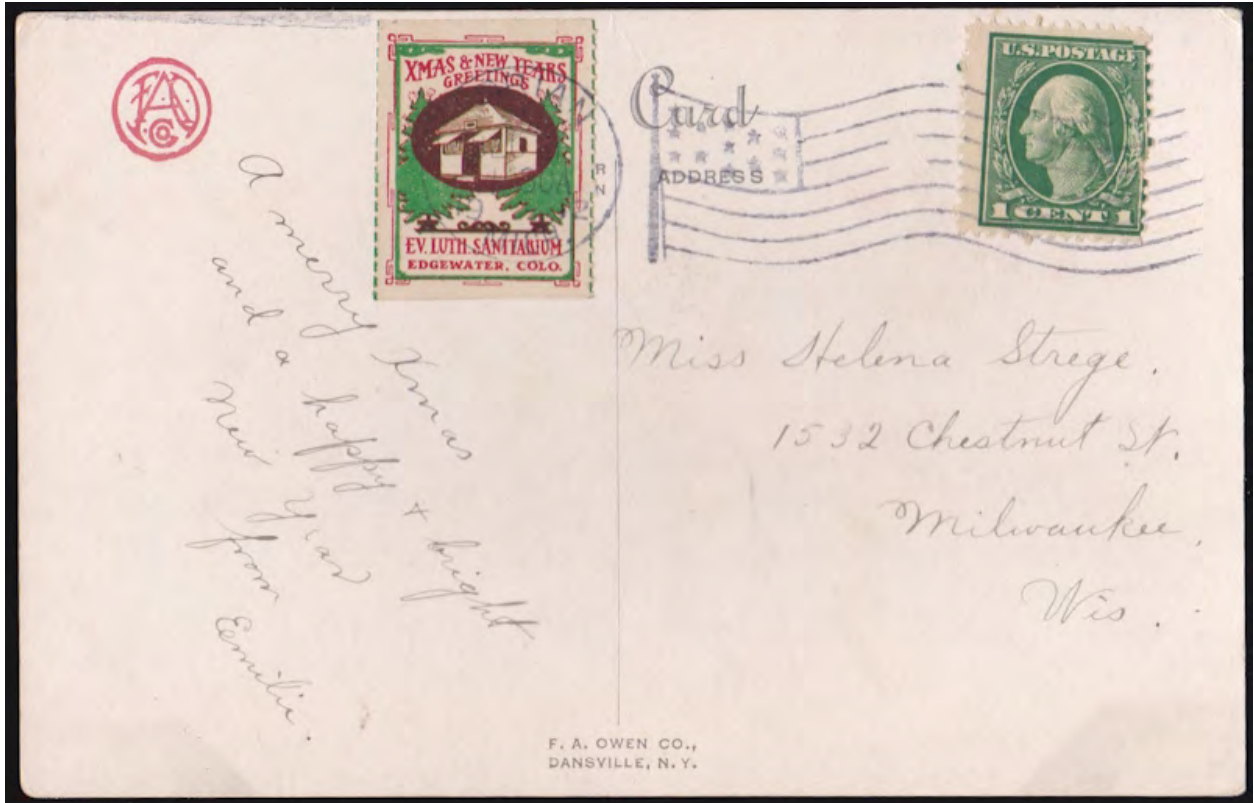 XMAS & NEW YEARS
GREETINGS
EV. LUTH. SANITARIUM
EDGEWATER, COLO.
Card
ADDRESS
U.S. POSTAGE
1 CENT 1
A merry Xmas
and a happy + bright
New Year
from
Eemilie.
Miss Helena Strege.
1532 Chestnut St.
Milwaukee,
Wis.
F. A. OWEN CO.,
DANSVILLE, N. Y.